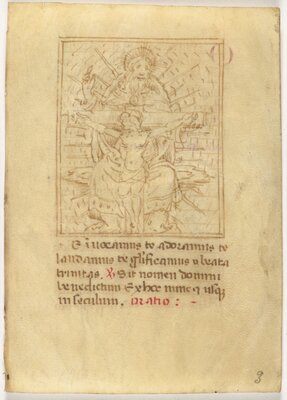 E inuocamus te adoramus te
laudamus te glificamus o beata
trinitas. ℟ Sit nomen domini
benedictum Ex hoc nunc ⁊ usq
in seculum. Oratio :-
3